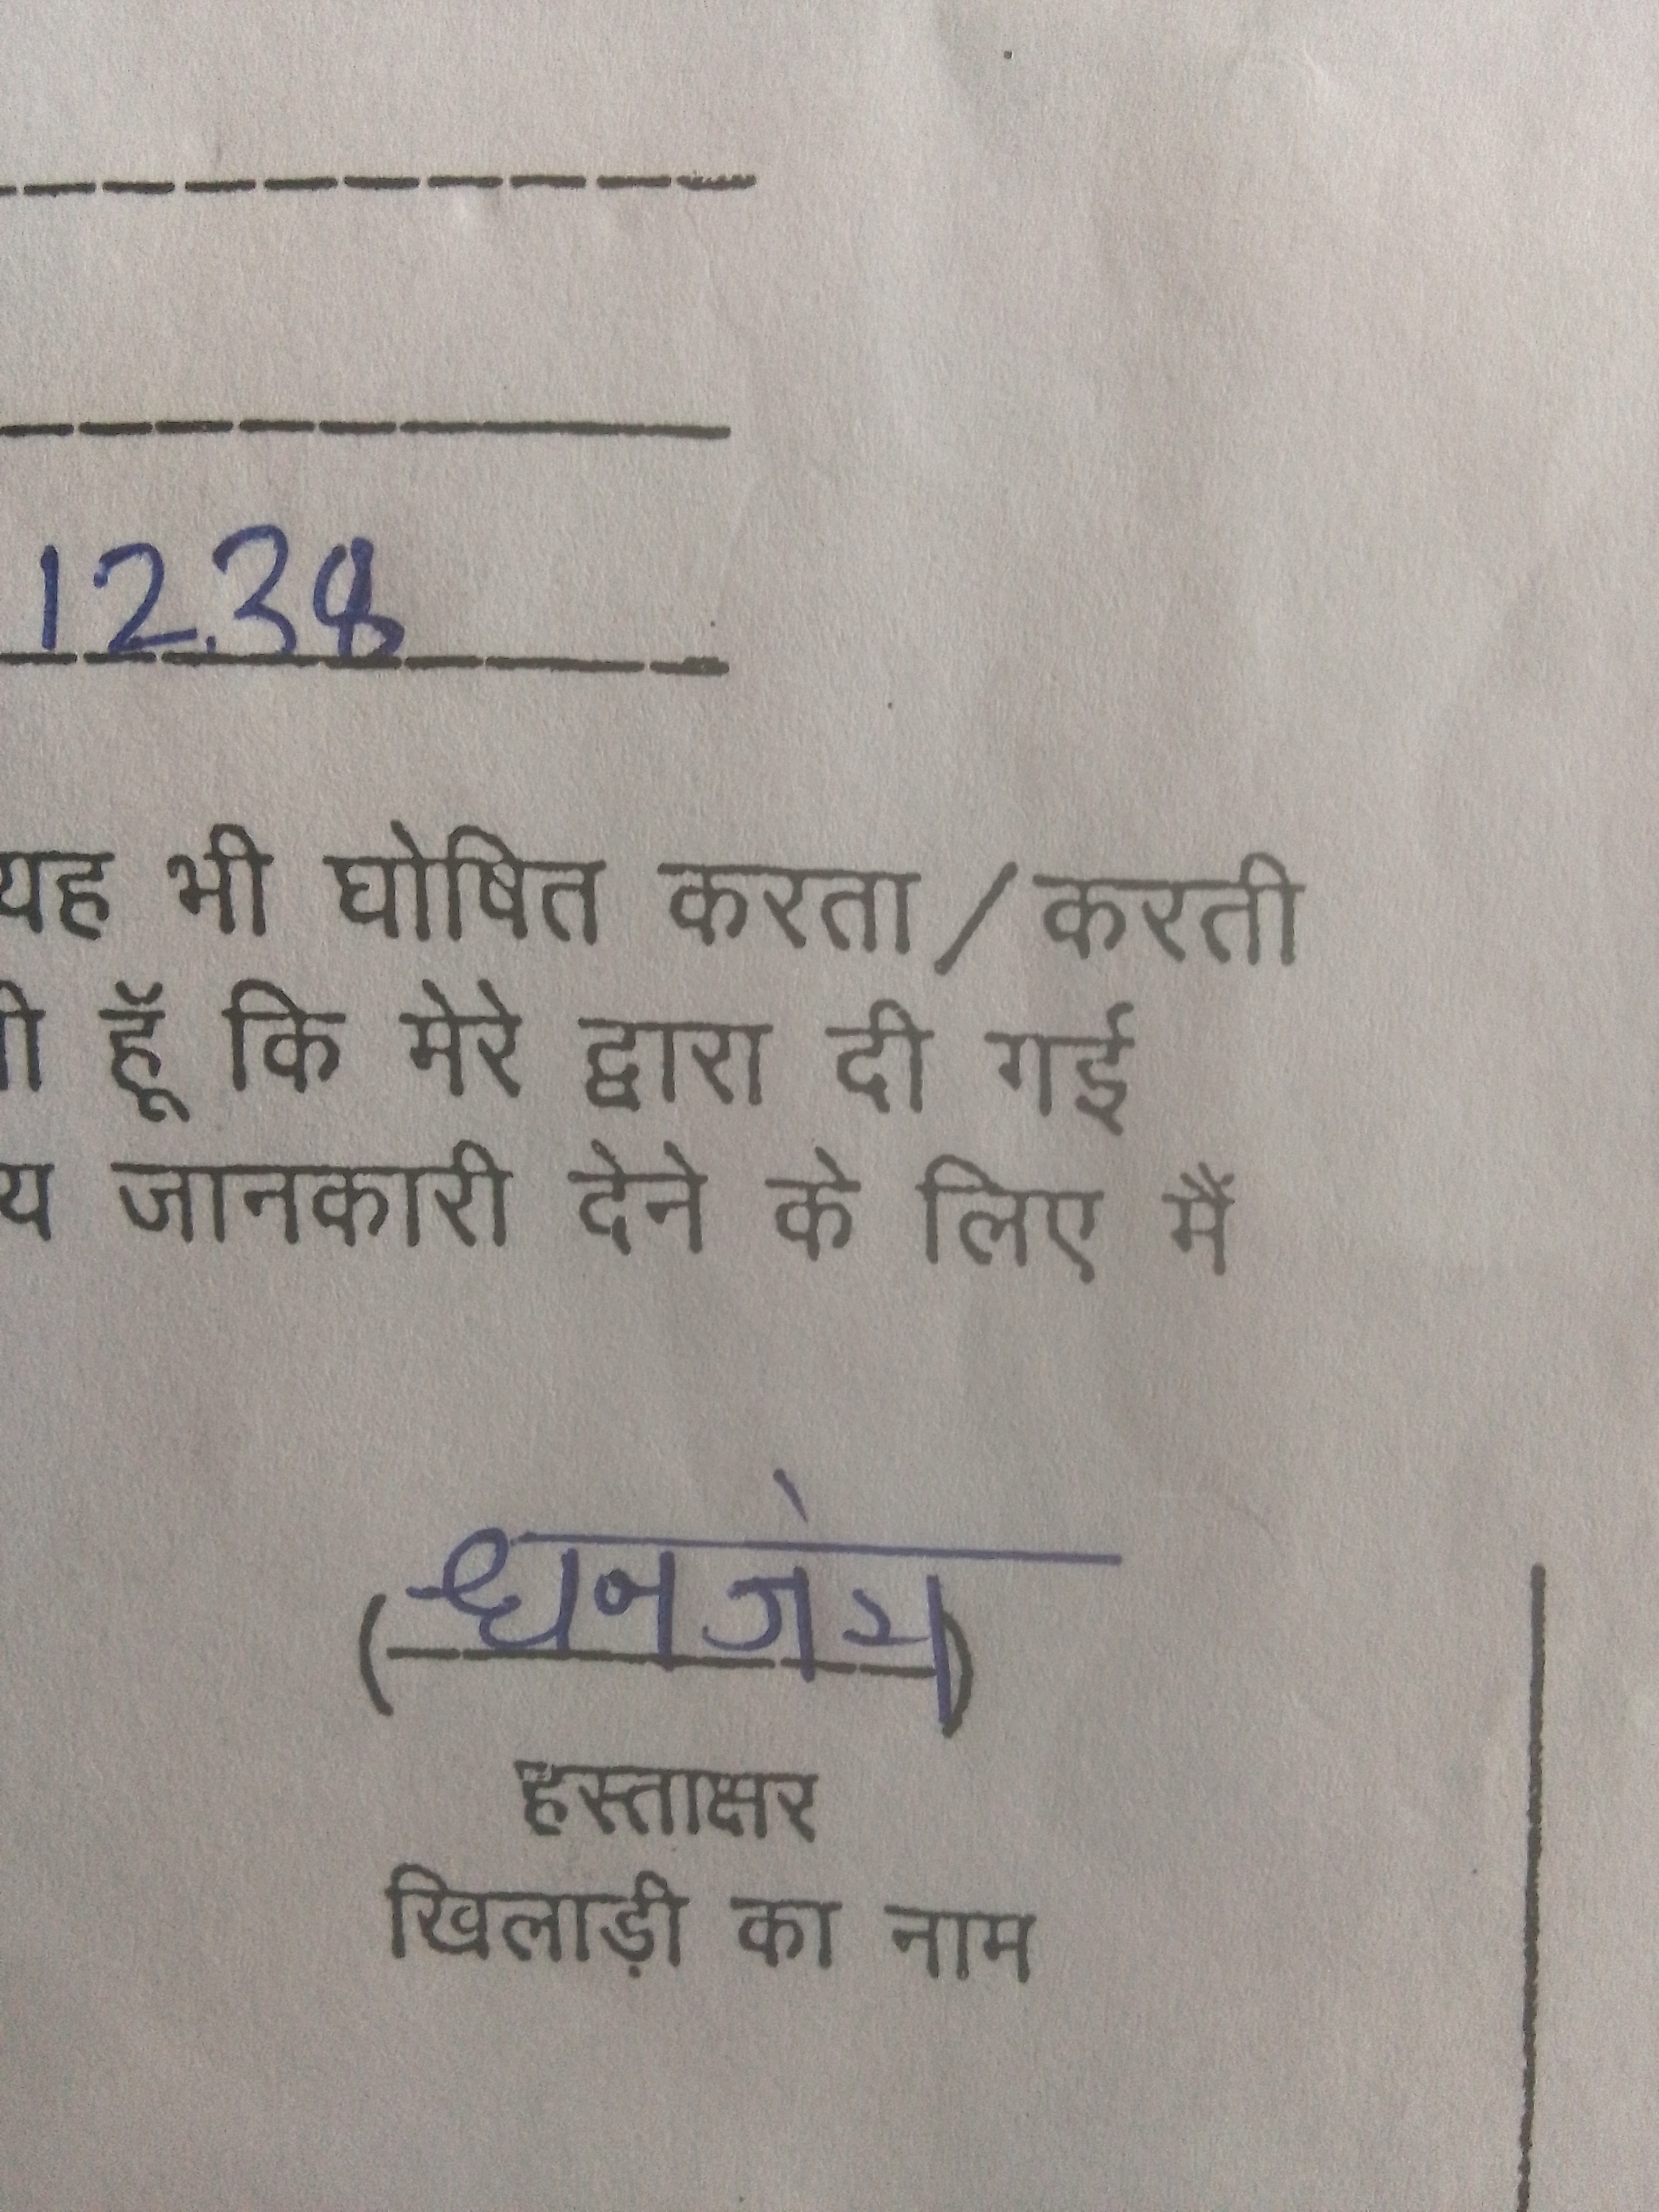 12.38
यह भी घोषित करता/करती
हूॅ कि मेरे द्वारा दी गई
य जानकारी देने के लिए मैं
(धनजेय)
हस्ताक्षर
खिलाड़ी का नाम